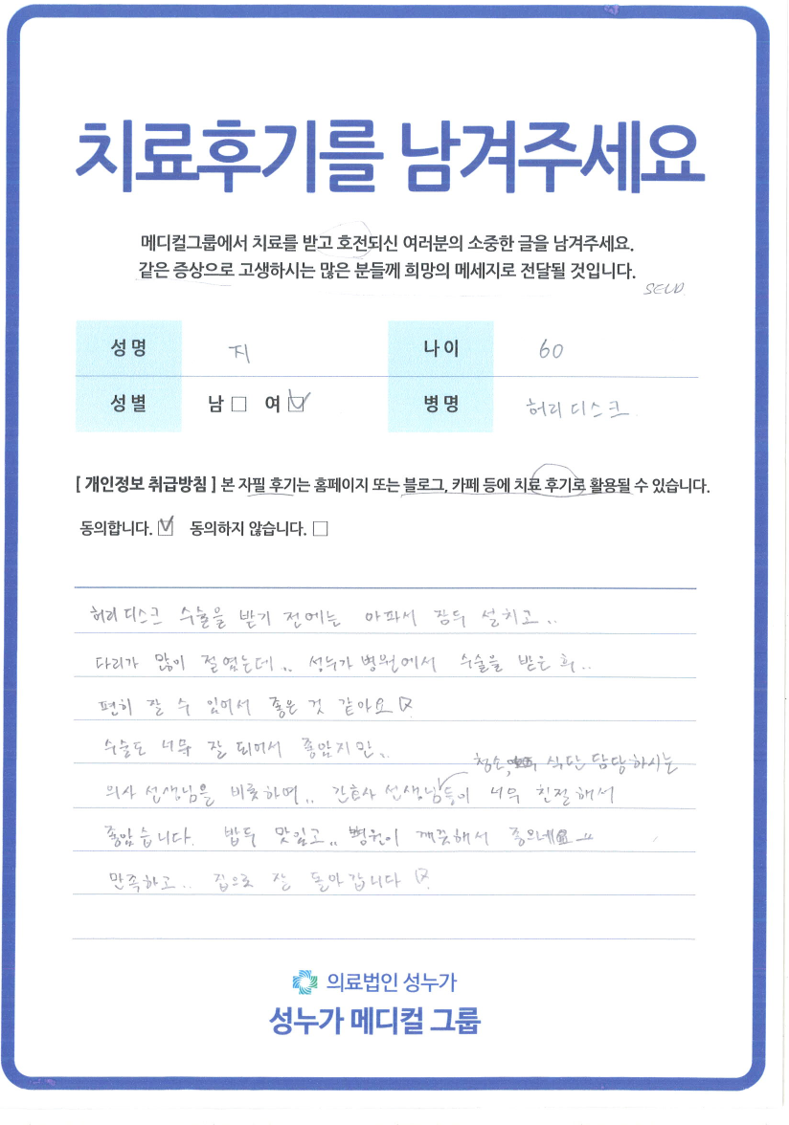 치료후기를 남겨주세요
메디컬그룹에서 치료를 받고 호전되신 여러분의 소중한 글을 남겨주세요.
같은 증상으로 고생하시는 많은 분들께 희망의 메세지로 전달될 것입니다.
성명 지 나이 60
성별 남 □ 여 ☑ 병명 허리디스크
[ 개인정보 취급방침 ] 본 자필 후기는 홈페이지 또는 블로그, 카페 등에 치료 후기로 활용될 수 있습니다.
동의합니다. ☑ 동의하지 않습니다. □
허리디스크 수술을 받기 전에는 아파서 잠두 설치고..
다리가 많이 절였는데.. 성누가병원에서 수술을 받은 후..
편히 잘 수 있어서 좋은 것 같아요
수술도 너무 잘 되어서 좋았지만..
청소, 식단 담당하시는
의사 선생님을 비롯하며.. 간호사 선생님들이 너무 친절해서
좋았습니다. 밥두 맛있고.. 병원이 깨끗해서
만족하고.. 집으로 잘 돌아갑니다
의료법인 성누가
성누가 메디컬 그룹